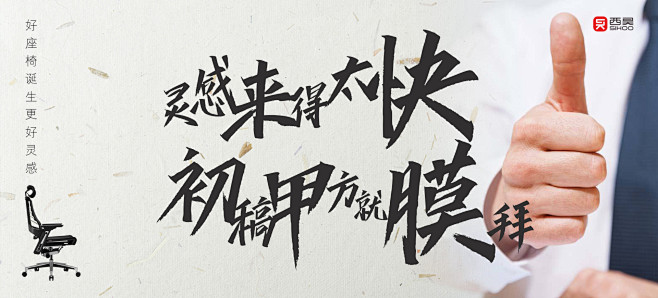 好座椅诞生更好灵感
灵感来得太快
初稿甲方就膜拜
西昊
SIHOO